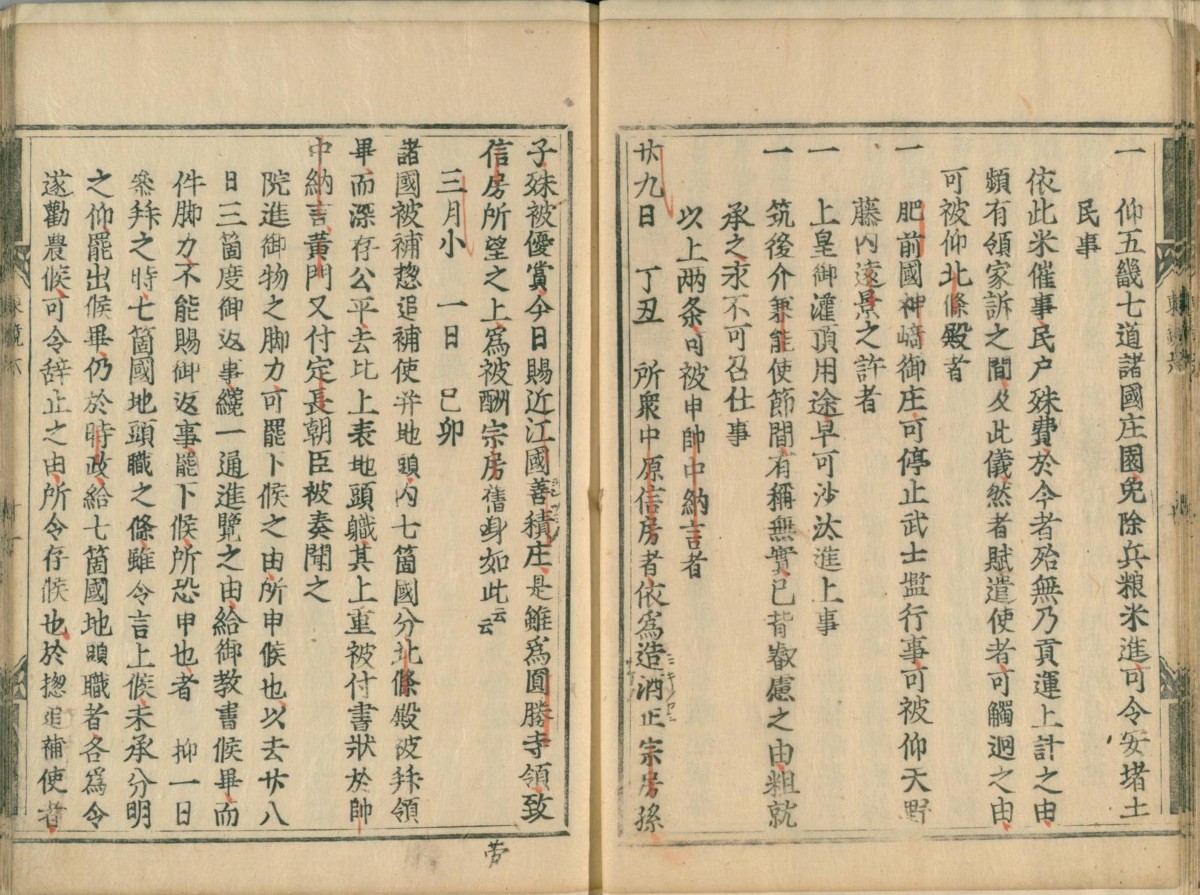 一 仰五畿七道諸國庄園免除兵粮米進可令安堵土
民事
依此米催事民戸殊費於今者殆無乃貢運上計之由
頻有領家訴之間及此儀然者賦遣使者可觸廻之由
可被仰北條殿者
一 肥前國神﨑御庄可停止武士濫行事可被仰天野
藤内遠景之許者
一 上皇御灌頂用途早可沙汰進上事
一 筑後介兼能使節間有稱無實已背叡慮之由粗就
承之求不可召仕事
以上兩条可被申帥中納言者
廿九日 丁丑 所衆中原信房者依爲造酒正宗房孫
子殊被優賞今日賜近江國善積庄是雖爲圓勝寺領致
信房所望之上爲被酬宗房舊身如此云云
三月小 一日 己卯
諸國被補惣追補使并地頭内七箇國分北條殿被拜領
畢而深存公平去比上表地頭職其上重被付書狀於帥
中納言黄門又付定長朝臣被奏聞之
院進御物之脚力可罷卜候之由所申候也以去廿八
日三箇度御返事纔一通進覽之由給御教書候畢而
件脚力不能賜御返事罷下候所恐申也者 抑一日
參拜之時七箇國地頭職之條雖令言上候未承分明
之仰罷出候畢仍於時政給七箇國地頭職者各爲令
遂勸農候可令辞止之由所令存候也於惣追補使者